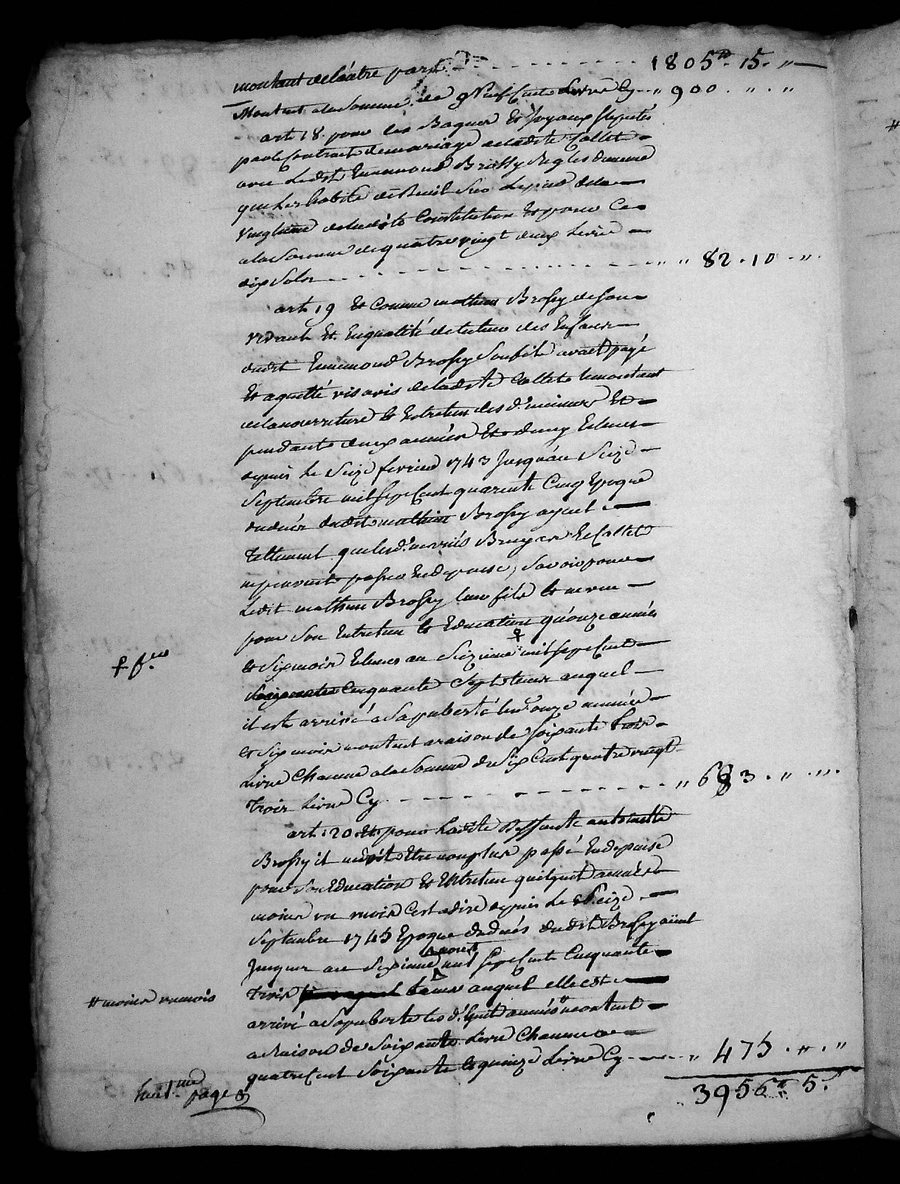 montant de l'autre part 1805tt. 15. "
Montent a la somme de neuf cent Livre Cy 900 . " . "
art 18. pour les Bagues Et joyaux stipules
par le Contrat de mariage a ladite Collet
avec Ledit Ennemond Brossy Regles
que Les habits de la
vingtieme de ladite Constitution Et pour Ce
a la Somme de quatre vingt deux Livre
dix Solz " " 82 . 10 . " .
art 19 Et Comme mathieu Brossy
Et En qualité de tuteur des Enfans
dudit Ennemond Brossy avait payé
Et aquitté vis avis de la dite Collet le montant
de la nourriture Et Entretien des d. mineurs Et
pendante deux années Et demy Echues
depuis le Seize fevrier 1743 Jusqu'au Seize
Septembre mil Sept Cent quarante Cinq Epoque
du decès dudit mathieu Brossy ayeul
tellement que les d. mariés Bruyer Et Collet
ne peuvent passer En depense, Savoir pour
Ledit mathieu Brossy leur fils le
pour Son Entretien Et Education qu'onze années
Et Six mois Echues au Sezieme mil Sept Cent
Cinquante Sept tems auquel
il est arrivé a Sa puberté les d. onze années
Et Six mois montent a raison de Soixante
Livre Chacune a la Somme de Six Cent quatre vingt
trois Livre Cy " 683 . " . " .
art. 20 Et pour Ladite Deffunte antoinette
Brossy il ne doit Etre non plus passé En depense
pour Son Education Et Entretien que huit années
moins un mois C'est a dire depuis le Seize
Septembre 1745 Epoque du decés dudit Brossy ayeul
Jusques au Sezieme aoust mil Sept Cent Cinquante
trois tems auquel elle est
arrivé a Sa puberte les d. huit années tt montent
a Raison de Soixante Livre Chacune a
quatre Cent Soixante Et quinze Livre Cy " 475 . " . "
3956tt. 5.
tt moins un mois
page